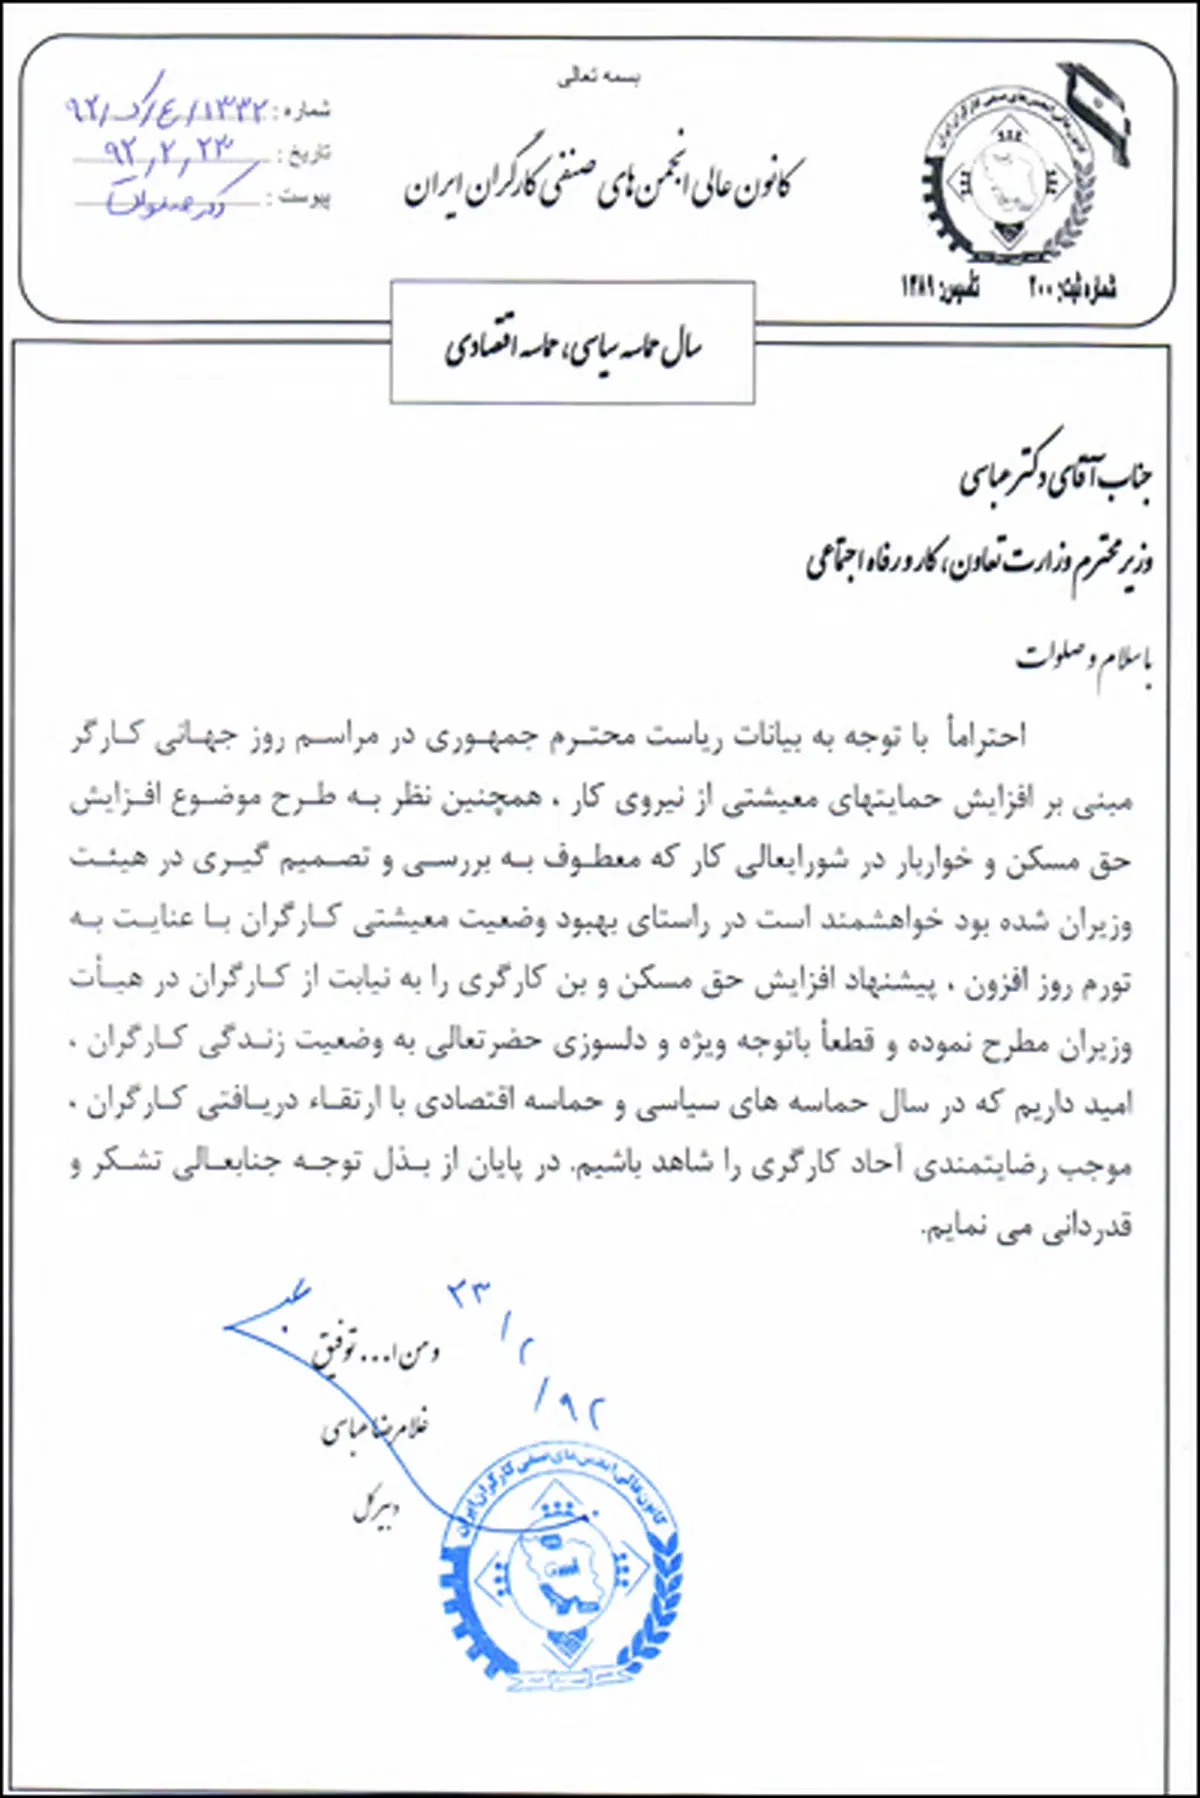 بسمه تعالی
کانون عالی انجمن های صنفی کارگران ایران
شماره : ۱۳۳۲/ع/ک/۹۲
تاریخ : ۹۲,۲,۲۳
پیوست :
کانون عالی انجمن های صنفی کارگران ایران
شماره ثبت: ۲۰۰ تأسیس: ۱۳۸۹
سال حماسه سیاسی، حماسه اقتصادی
جناب آقای دکتر عباسی
وزیر محترم وزارت تعاون، کار و رفاه اجتماعی
با سلام و صلوات
احتراماً با توجه به بیانات ریاست محترم جمهوری در مراسم روز جهانی کارگر
مبنی بر افزایش حمایتهای معیشتی از نیروی کار ، همچنین نظر به طرح موضوع افزایش
حق مسکن و خواربار در شورایعالی کار که معطوف به بررسی و تصمیم گیری در هیئت
وزیران شده بود خواهشمند است در راستای بهبود وضعیت معیشتی کارگران با عنایت به
تورم روز افزون ، پیشنهاد افزایش حق مسکن و بن کارگری را به نیابت از کارگران در هیأت
وزیران مطرح نموده و قطعاً باتوجه ویژه و دلسوزی حضرتعالی به وضعیت زندگی کارگران ،
امید داریم که در سال حماسه های سیاسی و حماسه اقتصادی با ارتقاء دریافتی کارگران ،
موجب رضایتمندی آحاد کارگری را شاهد باشیم. در پایان از بذل توجه جنابعالی تشکر و
قدردانی می نمایم.
۲۳/۲/۹۲
و من ا... توفیق
غلامرضا عباسی
دبیرکل
کانون عالی انجمن های صنفی کارگران ایران